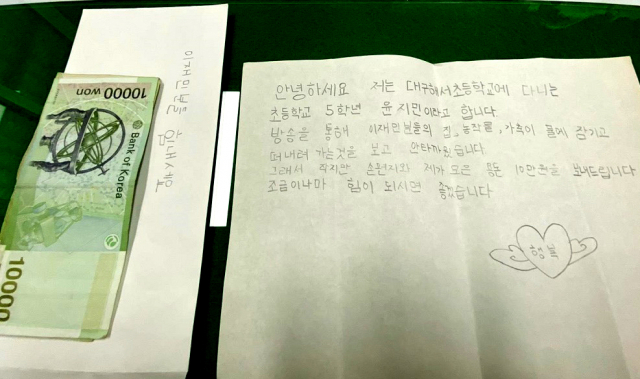 10000 won
Bank of Korea
10000
이재민분들 힘내세요
안녕하세요 저는 대구해서초등학교에 다니는
초등학교 5학년 윤지민이라고 합니다.
방송을 통해 이재민분들의 집, 농작물, 가축이 물에 잠기고
떠내려 가는것을 보고 안타까웠습니다.
그래서 작지만 제가 모은 용돈 10만원을 보내드립니다
조금이나마 힘이 되시면 좋겠습니다
행복